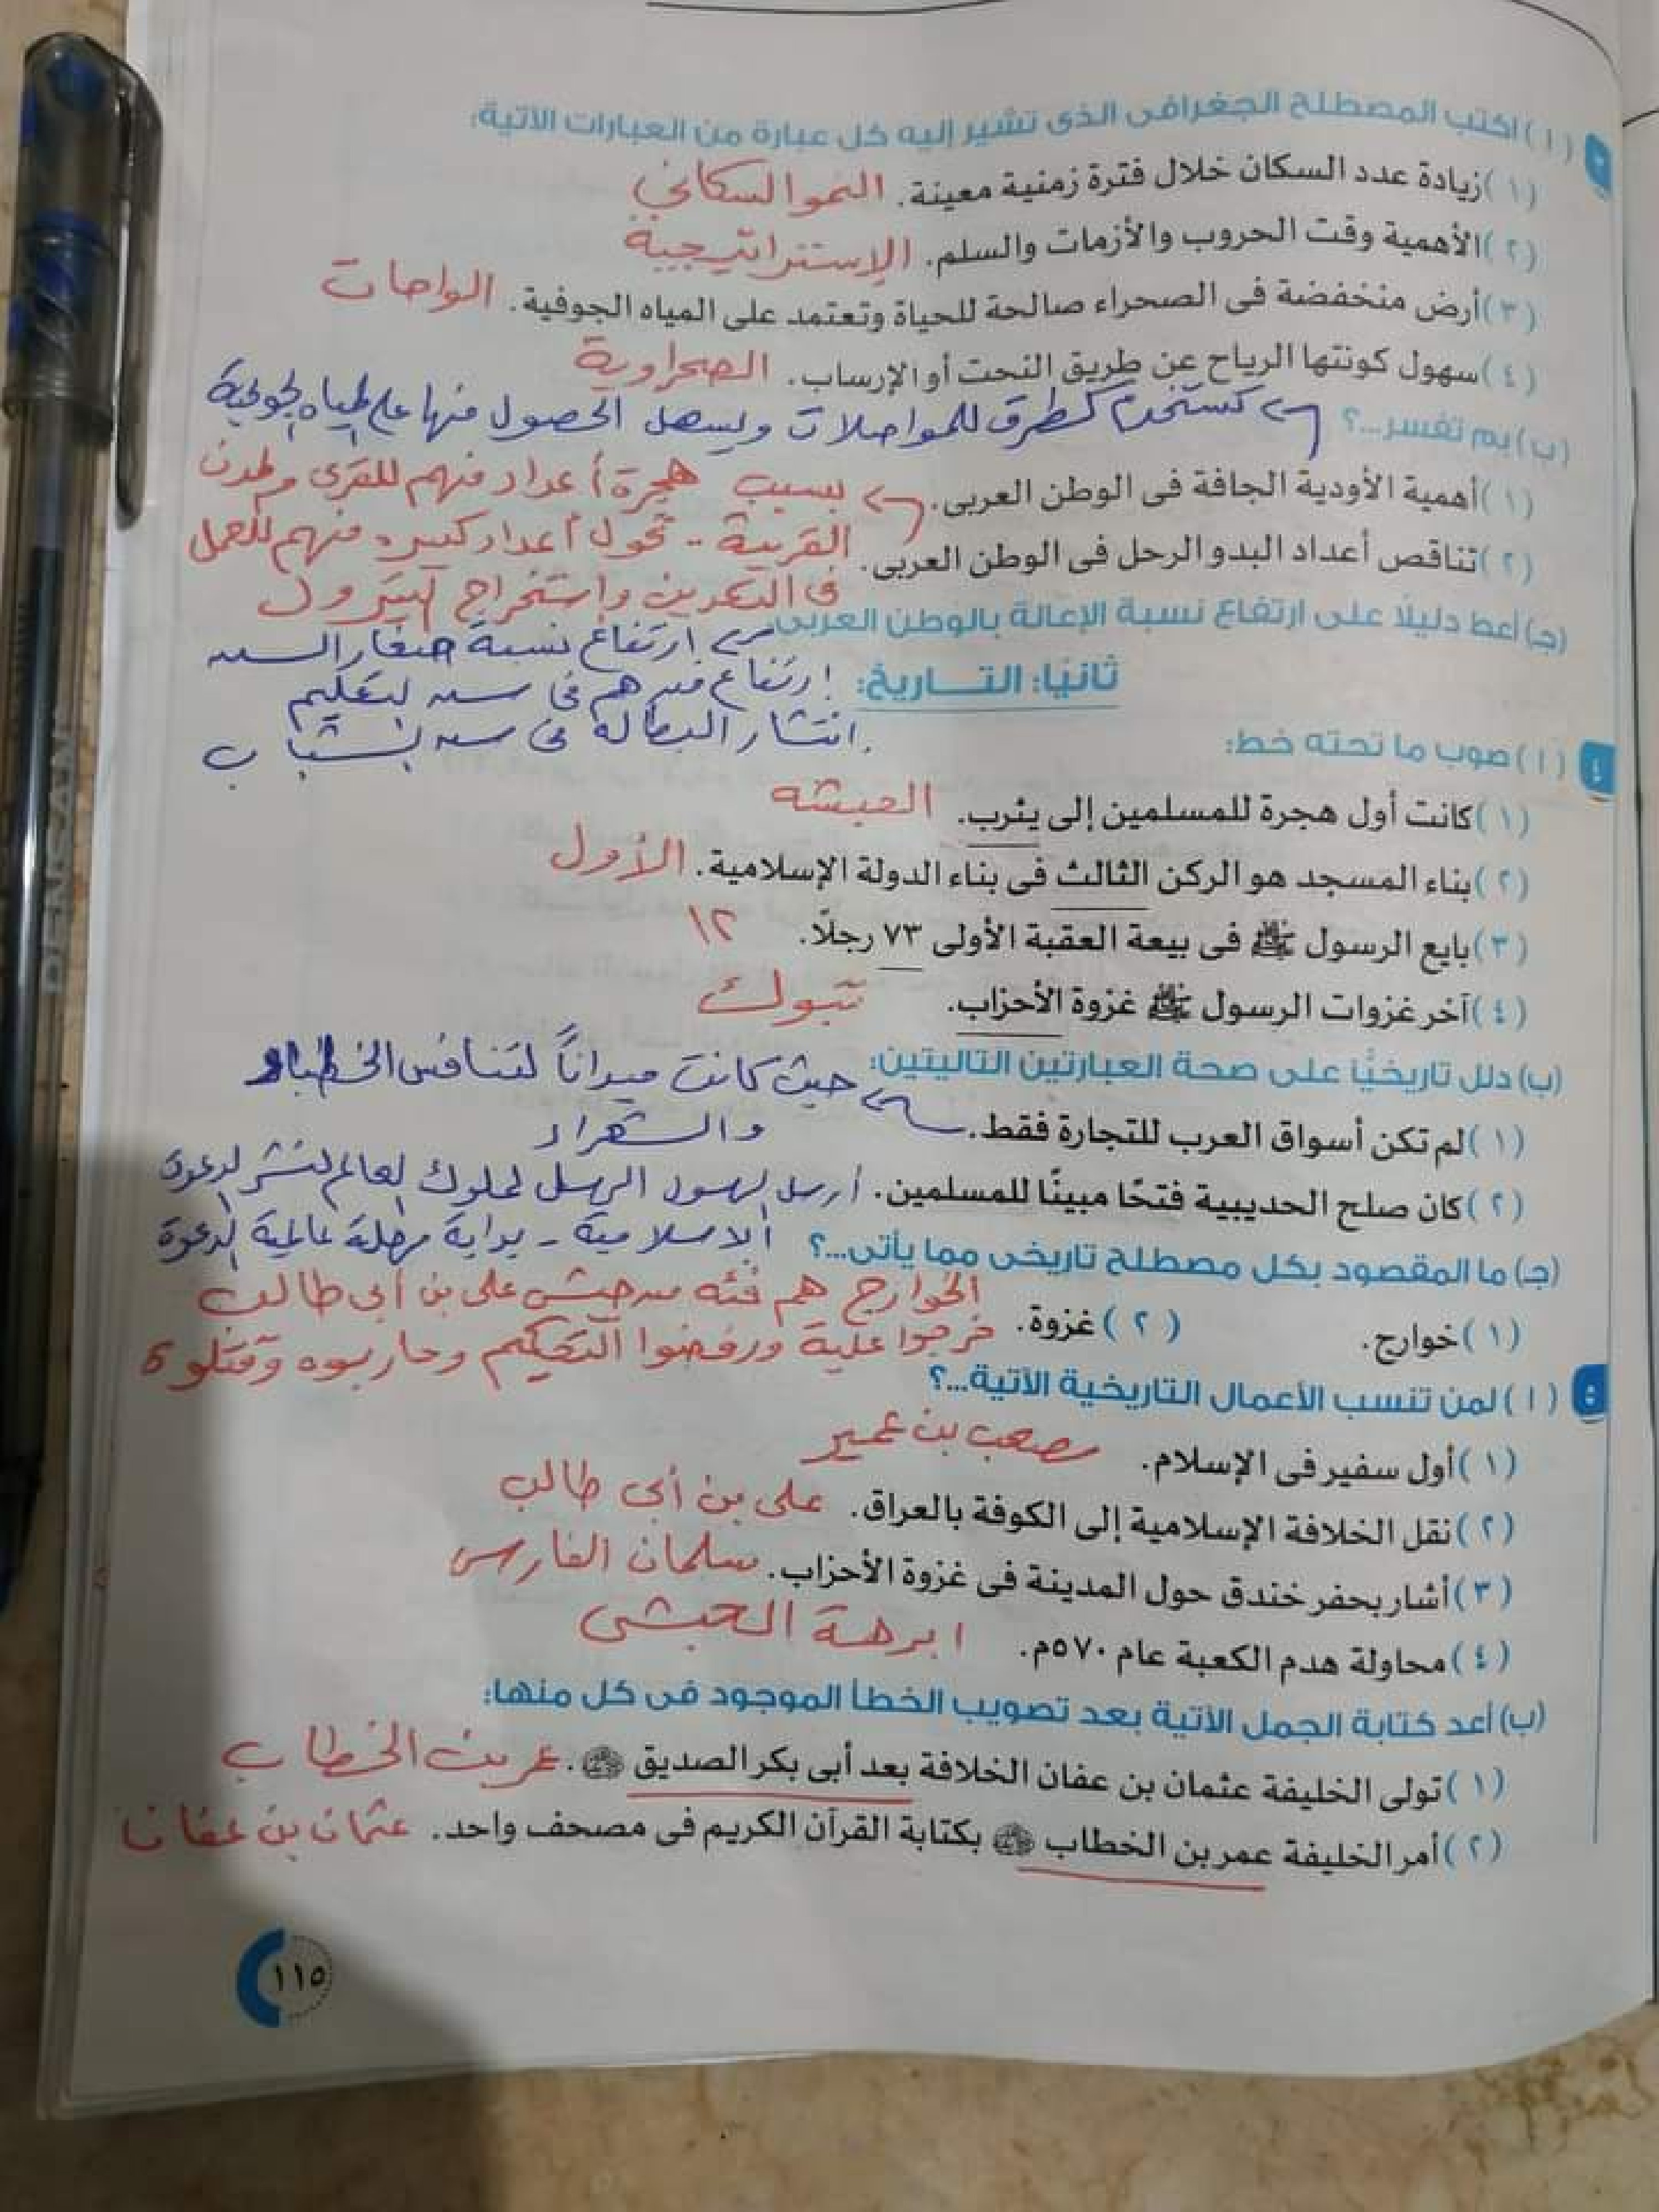 (أ) اكتب المصطلح الجغرافى الذى تشير إليه كل عبارة من العبارات الآتية:
(١) زيادة عدد السكان خلال فترة زمنية معينة. النمو السكاني
(٢) الأهمية وقت الحروب والأزمات والسلم. الإستراتيجية
(٣) أرض منخفضة فى الصحراء صالحة للحياة وتعتمد على المياه الجوفية. الواحات
(٤) سهول كونتها الرياح عن طريق النحت أو الإرساب. الصحراوية
(ب) بم تفسر...؟ كستخدم كطرق للمواصلات ويسهل الحصول منها على المياه الجوفية
(١) أهمية الأودية الجافة فى الوطن العربى. بسبب هجرة أعداد منهم للقرى والمدن
(٢) تناقص أعداد البدو الرحل فى الوطن العربى. القريبة .. تحول أعداد كبيره منهم للعمل
فى التعدين واستخراج البترول
(جـ) أعط دليلًا على ارتفاع نسبة الإعالة بالوطن العربى. ارتفاع نسبة صغار السن
ثانيًا: التـــاريخ: ارتفاع من هم فى سن التعليم
٤ (أ) صوب ما تحته خط: انتشار البطالة فى سن الشباب
(١) كانت أول هجرة للمسلمين إلى يثرب. الحبشه
(٢) بناء المسجد هو الركن الثالث فى بناء الدولة الإسلامية. الأول
(٣) بايع الرسول ﷺ فى بيعة العقبة الأولى ٧٣ رجلًا. ١٢
(٤) آخر غزوات الرسول ﷺ غزوة الأحزاب. تبوك
(ب) دلل تاريخيًّا على صحة العبارتين التاليتين: حيث كانت ميداناً لتنافس الخطباء
(١) لم تكن أسواق العرب للتجارة فقط. والشعراء
(٢) كان صلح الحديبية فتحًا مبينًا للمسلمين. أرسل الرسول الرسل لملوك العالم لنشر الدعوة
الاسلامية - بداية مرحلة عالمية الدعوة
(جـ) ما المقصود بكل مصطلح تاريخى مما يأتى...؟
الخوارج هم فئه من جيش على بن أبى طالب
(١) خوارج. (٢) غزوة. خرجوا علية ورفضوا التحكيم وحاربوه وقتلوه
٥ (أ) لمن تنسب الأعمال التاريخية الآتية...؟
(١) أول سفير فى الإسلام. مصعب بن عمير
(٢) نقل الخلافة الإسلامية إلى الكوفة بالعراق. على بن أبى طالب
(٣) أشار بحفر خندق حول المدينة فى غزوة الأحزاب. سلمان الفارسى
(٤) محاولة هدم الكعبة عام ٥٧٠م. ابرهة الحبشى
(ب) أعد كتابة الجمل الآتية بعد تصويب الخطأ الموجود فى كل منها:
(١) تولى الخليفة عثمان بن عفان الخلافة بعد أبى بكر الصديق. عمر بن الخطاب
(٢) أمر الخليفة عمر بن الخطاب بكتابة القرآن الكريم فى مصحف واحد. عثمان بن عفان
١١٥
PENSAN